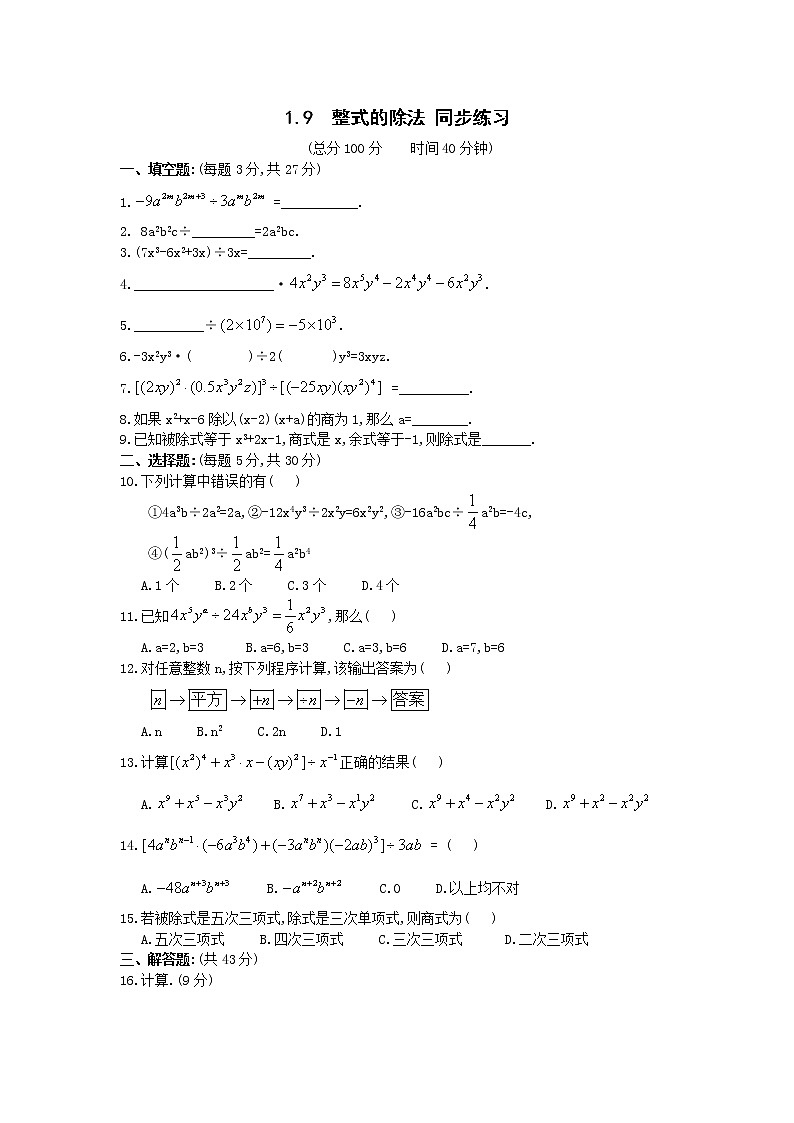 1.9 整式的除法 同步练习
(总分100分 时间40分钟)
一、填空题:(每题3分,共27分)
1.$-9a^{2m}b^{2m+3}÷3a^{m}b^{2m}$ =___________.
2. 8a²b²c÷_________=2a²bc.
3.(7x³-6x²+3x)÷3x=_________.
4.____________________·$4x^{2}y^{3}=8x^{5}y^{4}-2x^{4}y^{4}-6x^{2}y^{3}$.
5.__________÷$(2×10^{7})=-5×10^{3}$.
6.-3x²y³·( )÷2( )y³=3xyz.
7.$[(2xy)^{2}·(0.5x^{3}y^{2}z)]^{3}÷[(-25xy)(xy^{2})^{4}]$ =__________.
8.如果x²+x-6除以(x-2)(x+a)的商为1,那么a=________.
9.已知被除式等于x³+2x-1,商式是x,余式等于-1,则除式是_______.
二、选择题:(每题5分,共30分)
10.下列计算中错误的有( )
①4a³b÷2a²=2a,②-12x⁴y³÷2x²y=6x²y²,③-16a²bc÷$\frac{1}{4}$a²b=-4c,
④($\frac{1}{2}$ab²)³÷$\frac{1}{2}$ab²=$\frac{1}{4}$a²b⁴
A.1个 B.2个 C.3个 D.4个
11.已知$4x^{5}y^{a}÷24x^{b}y^{3}=\frac{1}{6}x^{2}y^{3}$,那么( )
A.a=2,b=3 B.a=6,b=3 C.a=3,b=6 D.a=7,b=6
12.对任意整数n,按下列程序计算,该输出答案为( )
n → 平方 → +n → ÷n → -n → 答案
A.n B.n² C.2n D.1
13.计算$[(x^{2})^{4}+x^{3}·x-(xy)^{2}]÷x^{-1}$正确的结果( )
A.$x^{9}+x^{5}-x^{3}y^{2}$ B.$x^{7}+x^{3}-x^{1}y^{2}$ C.$x^{9}+x^{4}-x^{2}y^{2}$ D.$x^{9}+x^{2}-x^{2}y^{2}$
14.$[4a^{n}b^{n-1}·(-6a^{3}b^{4})+(-3a^{n}b^{n})(-2ab)^{3}]÷3ab$ = ( )
A.$-48a^{n+3}b^{n+3}$ B.$-a^{n+2}b^{n+2}$ C.0 D.以上均不对
15.若被除式是五次三项式,除式是三次单项式,则商式为( )
A.五次三项式 B.四次三项式 C.三次三项式 D.二次三项式
三、解答题:(共43分)
16.计算.(9分)